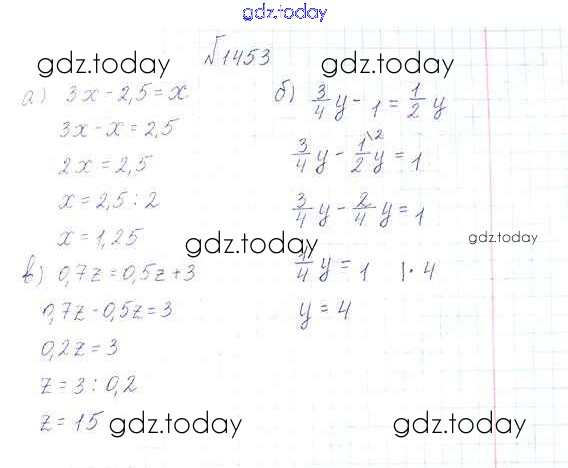 gdz.today
№1453
gdz.today
gdz.today
а) 3x - 2,5 = x
3x - x = 2,5
2x = 2,5
x = 2,5 : 2
x = 1,25
б) 3/4 y - 1 = 1/2 y
3/4 y - 1\2/2 y = 1
3/4 y - 2/4 y = 1
1/4 y = 1 |· 4
y = 4
gdz.today
gdz.today
в) 0,7z = 0,5z + 3
0,7z - 0,5z = 3
0,2z = 3
z = 3 : 0,2
z = 15
gdz.today
gdz.today